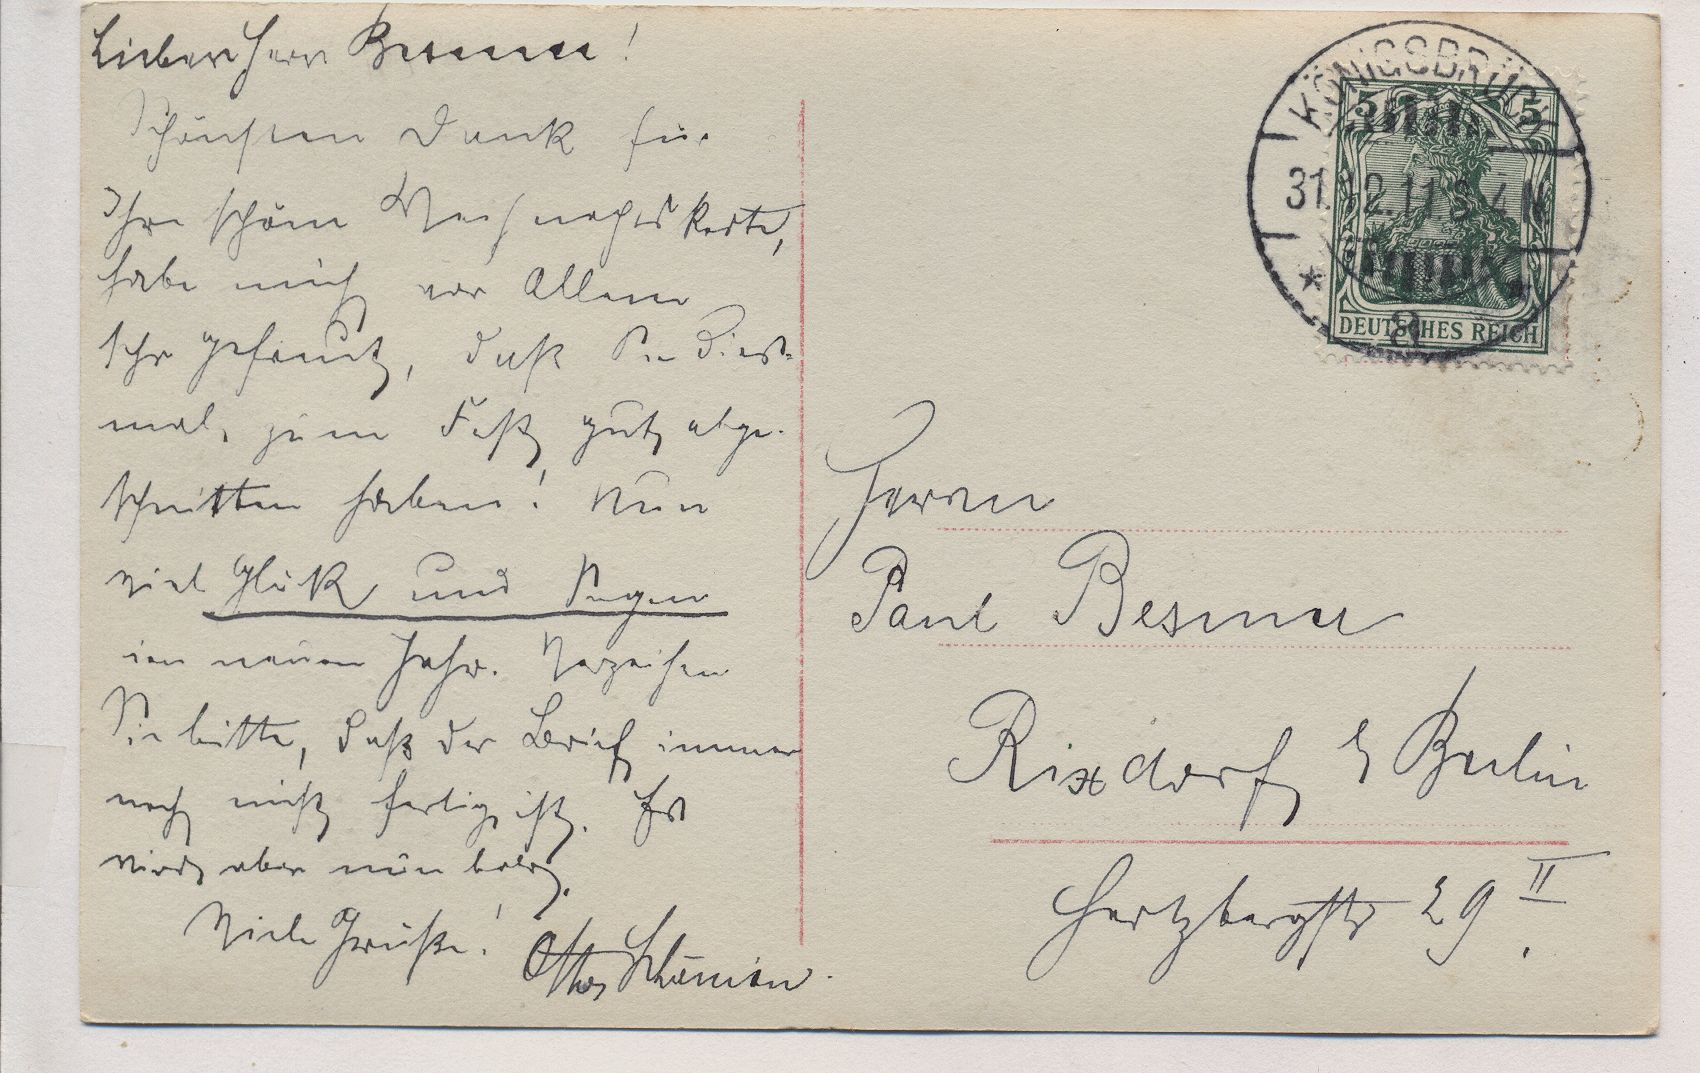 Lieber Herr Besmer!
Schönsten Dank für
Ihre schöne Weihnachtskarte,
habe mich vor Allem
sehr gefreut, daß Sie Dies-
mal, zum Fest gut abge-
schnitten haben! Nun
viel Glück und Segen
im neuen Jahr. Verzeihen
Sie bitte, daß der Brief immer
noch nicht fertig ist. Er
wird aber nun bald.
Viele Grüße! Otto
KÖNIGSBRÜCK
31.12.11.3-4 N
* a *
5 5
DEUTSCHES REICH
Herrn
Paul Besmer
Rixdorf b Berlin
Hertzbergstr 29 II